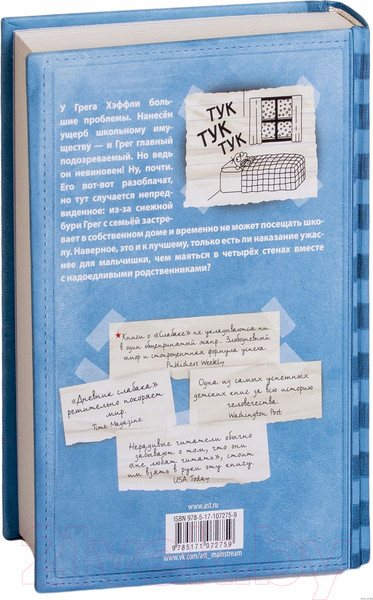 У Грега Хэффли боль-
шие проблемы. Нанесён
ущерб школьному иму-
ществу — и Грег главный
подозреваемый. Но ведь
он невиновен! Ну, почти.
Его вот-вот разоблачат,
но тут случается непред-
виденное: из-за снежной
бури Грег с семьёй застре-
вает в собственном доме и временно не может посещать шко-
лу. Наверное, это и к лучшему, только есть ли наказание ужас-
нее для мальчишки, чем маяться в четырёх стенах вместе
с надоедливыми родственниками?
ТУК
ТУК
ТУК
★ Книги о «Слабаке» не укладываются ни
в один общепринятый жанр. Злободневный
юмор и стопроцентная формула успеха.
Publishers Weekly
«Дневник слабака»
решительно покоряет
мир.
Time Magazine
Одна из самых успешных
детских книг за всю историю
человечества.
Washington Post
Нерадивые читатели обычно
забывают о том, что они
«не любят читать», стоит
им взять в руки эту книгу.
USA Today
www.ast.ru
ISBN 978-5-17-107275-9
9 785171 072759
www.vk.com/ast_mainstream